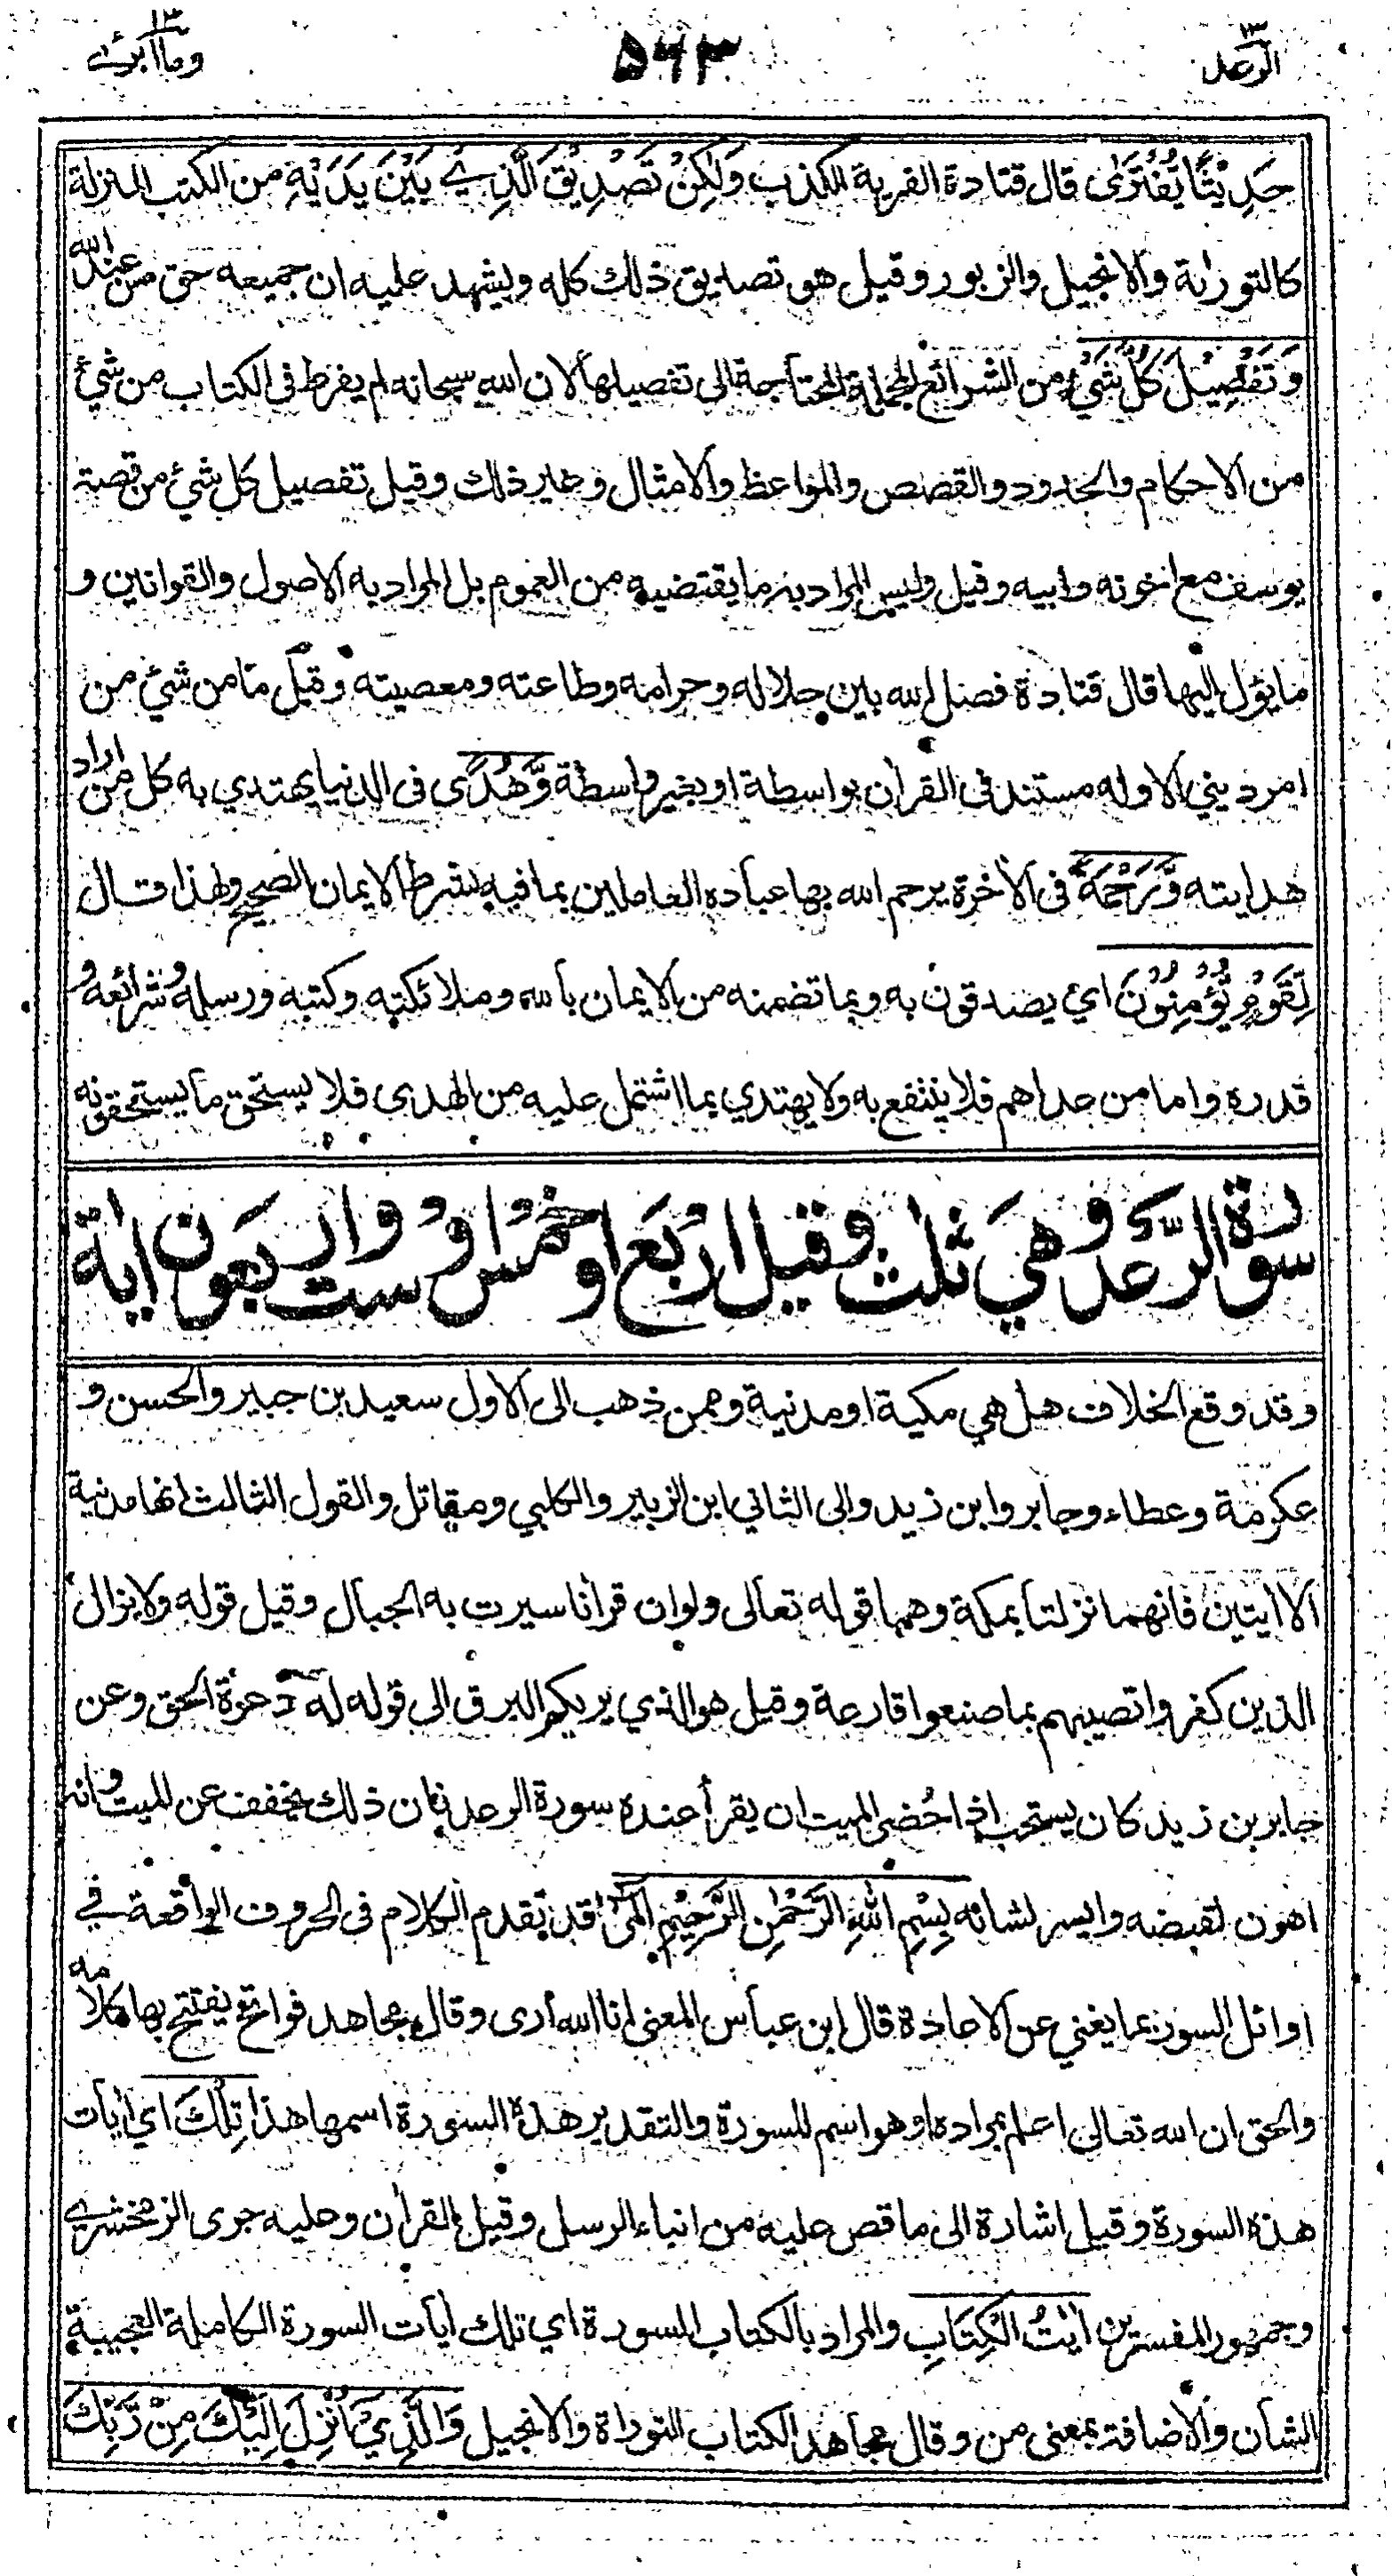 الرعد ١٣
٥٦٣
وما ابرئ ١٣
حَدِيْثًا يُّفْتَرٰى قال قتادة الفرية الكذب وَلٰكِنْ تَصْدِيْقَ الَّذِيْ بَيْنَ يَدَيْهِ من الكتب المنزلة
كالتورٰىة والانجيل والزبور وقيل هو تصديق ذلك كله ويشهد عليه ان جميعه حق من عند الله
وَتَفْصِيْلَ كُلِّ شَيْءٍ من الشرائع المجملة المحتاجة الى تفصيلها لان الله سبحانه لم يفرط فى الكتاب من شئ
من الاحكام والحدود والقصص والمواعظ والامثال وغير ذلك وقيل تفصيل كل شئ من قصة
يوسف مع اخوته وابيه وقيل وليس المراد به ما يقتضيه من العموم بل المراد به الاصول والقوانين و
ما يؤل اليها قال قتادة فصل الله بين حلاله وحرامه وطاعته ومعصيته وقيل ما من شئ من
امر ديني الا وله مستند فى القرأن بواسطة او بغير واسطة وَّهُدًى فى الدنيا يهتدي به كل من اراد
هدايته وَّرَحْمَةً فى الأخرة يرحم الله بها عباده العاملين بما فيه بشرط الايمان الصحيح ولهذا قال
لِّقَوْمٍ يُّؤْمِنُوْنَ اي يصدقون به وبما تضمنه من الايمان بالله وملائكته وكتبه ورسله وشرائعه و
قدره واما من عداهم فلا ينتفع به ولا يهتدي بما اشتمل عليه من الهدى فلا يستحق ما يستحقونه
سورة الرعد وهي ثلث وقيل اربع او خمس او ست واربعون اية
وقد وقع الخلاف هل هي مكية او مدنية وممن ذهب الى الاول سعيد بن جبير والحسن و
عكرمة وعطاء وجابر وابن زيد والى الثاني ابن الزبير والكلبي ومقاتل والقول الثالث انها مدنية
الا ايتين فانهما نزلتا بمكة وهما قوله تعالى ولو ان قرأنا سيرت به الجبال وقيل قوله ولا يزال
الذين كفروا تصيبهم بما صنعوا قارعة وقيل هو الذي يريكم البرق الى قوله له دعوة الحق وعن
جابر بن زيد كان يستحب اذا حُضر الميت ان يقرأ عنده سورة الرعد فان ذلك يخفف عن الميت وانه
اهون لقبضه وايسر لشانه بِسْمِ اللهِ الرَّحْمٰنِ الرَّحِيْمِ الٓمّٓرٰ قد تقدم الكلام فى الحروف الواقعة في
اوائل السور بما يغني عن الاعادة قال ابن عباس المعنى انا الله أرى وقال مجاهد فواتح يفتتح بها كلامه
والحق ان الله تعالى اعلم بمراده او هو اسم للسورة والتقدير هذه السورة اسمها هذا تِلْكَ اي أيات
هذه السورة وقيل اشارة الى ما قص عليه من انباء الرسل وقيل القرأن وعليه جرى الزمخشري
وجمهور المفسرين اٰيٰتُ الْكِتَابِ والمراد بالكتاب السورة اي تلك أيات السورة الكاملة العجيبة
الشان والاضافة بمعنى من وقال مجاهد الكتاب التوراة والانجيل وَالَّذِيْ اُنْزِلَ اِلَيْكَ مِنْ رَّبِّكَ